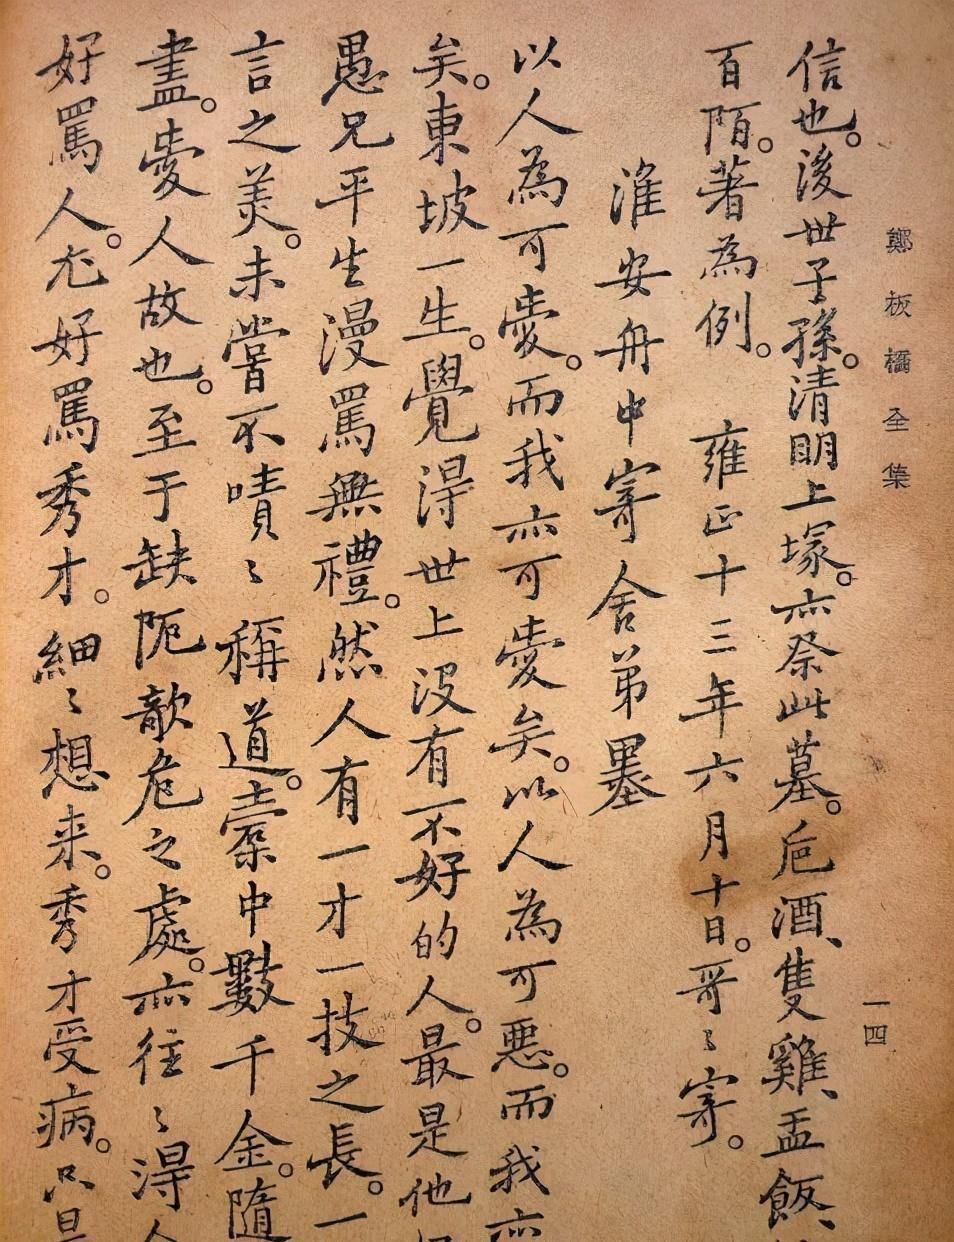 鄭板橋全集
一四
信也。後世子孫。清明上塚。亦祭此墓。卮酒、隻雞、盂飯、
百陌。著為例。 雍正十三年六月十日。哥〻寄。
淮安舟中寄舍弟墨
以人為可愛。而我亦可愛矣。以人為可惡。而我亦
矣。東坡一生。覺得世上没有不好的人。最是他
愚兄平生漫罵無禮。然人有一才一技之長。一
言之美。未嘗不嘖〻稱道。橐中數千金。隨
盡。愛人故也。至于缺阨欹危之處。亦往〻得人
好罵人。尤好罵秀才。細〻想来。秀才受病。只是